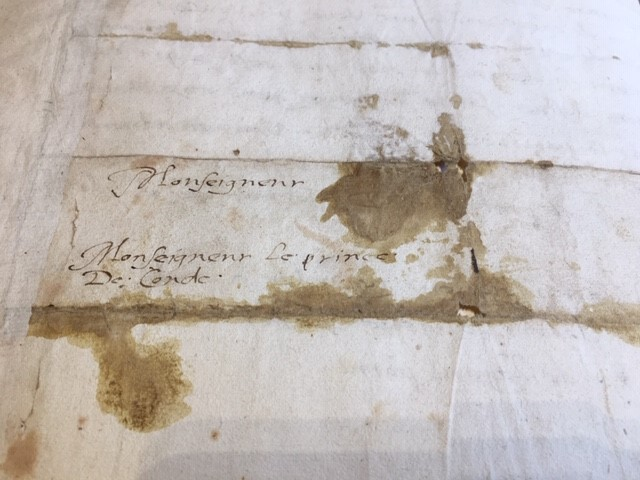 Monseigneur
Monseigneur le prince
De Conde